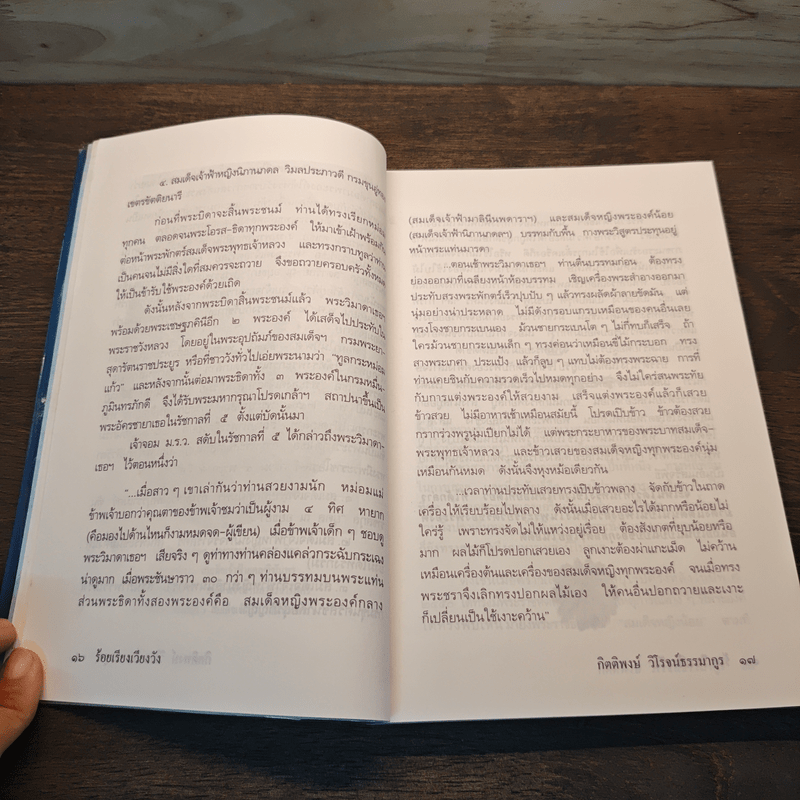 ๔. สมเด็จเจ้าฟ้าหญิงนิภานภดล วิมลประภาวดี กรมขุนอู่ทอง
เขตรขัตติยนารี
ก่อนที่พระบิดาจะสิ้นพระชนม์ ท่านได้ทรงเรียกหม่อม
ทุกคน ตลอดจนพระโอรส-ธิดาทุกพระองค์ ให้มาเข้าเฝ้าพร้อมกัน
ต่อหน้าพระพักตร์สมเด็จพระพุทธเจ้าหลวง และทรงกราบทูลว่าท่าน
เป็นคนจนไม่มีสิ่งใดที่สมควรจะถวาย จึงขอถวายครอบครัวทั้งหมด
ให้เป็นข้ารับใช้พระองค์ด้วยเถิด
ดังนั้นหลังจากพระบิดาสิ้นพระชนม์แล้ว พระวิมาดาเธอฯ
พร้อมด้วยพระเชษฐภคินีอีก ๒ พระองค์ ได้เสด็จไปประทับใน
พระราชวังหลวง โดยอยู่ในพระอุปถัมภ์ของสมเด็จฯ กรมพระยา-
สุดารัตนราชประยูร หรือที่ชาววังทั่วไปเอ่ยพระนามว่า “ทูลกระหม่อม
แก้ว” และหลังจากนั้นต่อมาพระธิดาทั้ง ๓ พระองค์ในกรมหมื่น-
ภูมินทรภักดี จึงได้รับพระมหากรุณาโปรดเกล้าฯ สถาปนาขึ้นเป็น
พระอัครชายาเธอในรัชกาลที่ ๕ ตั้งแต่บัดนั้นมา
เจ้าจอม ม.ร.ว. สดับในรัชกาลที่ ๕ ได้กล่าวถึงพระวิมาดา-
เธอฯ ไว้ตอนหนึ่งว่า
“...เมื่อสาว ๆ เขาเล่ากันว่าท่านสวยงามนัก หม่อมแม่
ข้าพเจ้าบอกว่าคุณตาของข้าพเจ้าชมว่าเป็นผู้งาม ๔ ทิศ หายาก
(คือมองไปด้านไหนก็งามหมดจด-ผู้เขียน) เมื่อข้าพเจ้าเด็ก ๆ ชอบดู
พระวิมาดาเธอฯ เสียจริง ๆ ดูท่าทางท่านคล่องแคล่วกระฉับกระเฉง
น่าดูมาก เมื่อพระชันษาราว ๓๐ กว่า ๆ ท่านบรรทมบนพระแท่น
ส่วนพระธิดาทั้งสองพระองค์คือ สมเด็จหญิงพระองค์กลาง
๑๖ ร้อยเรียงเวียงวัง
(สมเด็จเจ้าฟ้ามาลินีนพดาราฯ) และสมเด็จหญิงพระองค์น้อย
(สมเด็จเจ้าฟ้านิภานภดลฯ) บรรทมกับพื้น กางพระวิสูตรประทุนอยู่
หน้าพระแท่นมารดา
...ตอนเช้าพระวิมาดาเธอฯ ท่านตื่นบรรทมก่อน ต้องทรง
ย่องออกมาที่เฉลียงหน้าห้องบรรทม เชิญเครื่องพระสำอางออกมา
ประทับสรงพระพักตร์เร็วปุบปับ ๆ แล้วทรงผลัดผ้าลายขัดมัน แต่
นุ่มอย่างน่าประหลาด ไม่มีดังกรอบแกรบเหมือนของคนอื่นเลย
ทรงโจงชายกระเบนเอง ม้วนชายกระเบนโต ๆ ไม่กี่ทบก็เสร็จ ถ้า
ใครม้วนชายกระเบนเล็ก ๆ ทรงว่าทิ่มก้นเหมือนขี่ไม้กระบอก ทรง
สางพระเกศา ประแป้ง แล้วก็ลูบ ๆ แทบไม่ต้องทรงพระฉาย การที่
ท่านเคยชินกับความรวดเร็วไปหมดทุกอย่าง จึงไม่ใคร่สนพระทัย
กับการแต่งพระองค์ให้สวยงาม เสร็จแต่งพระองค์แล้วก็เสวย
ข้าวสวย ไม่มีอาหารเช้าเหมือนสมัยนี้ โปรดเป็บข้าว ข้าวต้องสวย
กรากร่วงพรูนุ่มเปียกไม่ได้ แต่พระกระยาหารของพระบาทสมเด็จ-
พระพุทธเจ้าหลวง และข้าวเสวยของสมเด็จหญิงทุกพระองค์นุ่ม
เหมือนกันหมด ดังนั้นจึงหุงหม้อเดียวกัน
...เวลาท่านประทับเสวยทรงเป็บข้าวพลาง จัดกับข้าวในถาด
เครื่องให้เรียบร้อยไปพลาง ดังนั้นเมื่อสวยอะไรได้มากหรือน้อยไม่
ใคร่รู้ เพราะทรงจัดไม่ให้แหว่งอยู่เรื่อย ต้องสังเกตที่ยุบน้อยหรือ
มาก ผลไม้ก็โปรดปอกเสวยเอง ลูกเงาะต้องผ่าแกะเม็ด ไม่คว้าน
เหมือนเครื่องต้นและเครื่องของสมเด็จหญิงทุกพระองค์ จนเมื่อทรง
พระชราจึงเลิกทรงปอกผลไม้เอง ให้คนอื่นปอกถวายและเงาะ
ก็เปลี่ยนเป็นใช้เงาะคว้าน”
กิตติพงษ์ วิโรจน์ธรรมากูร ๑๗